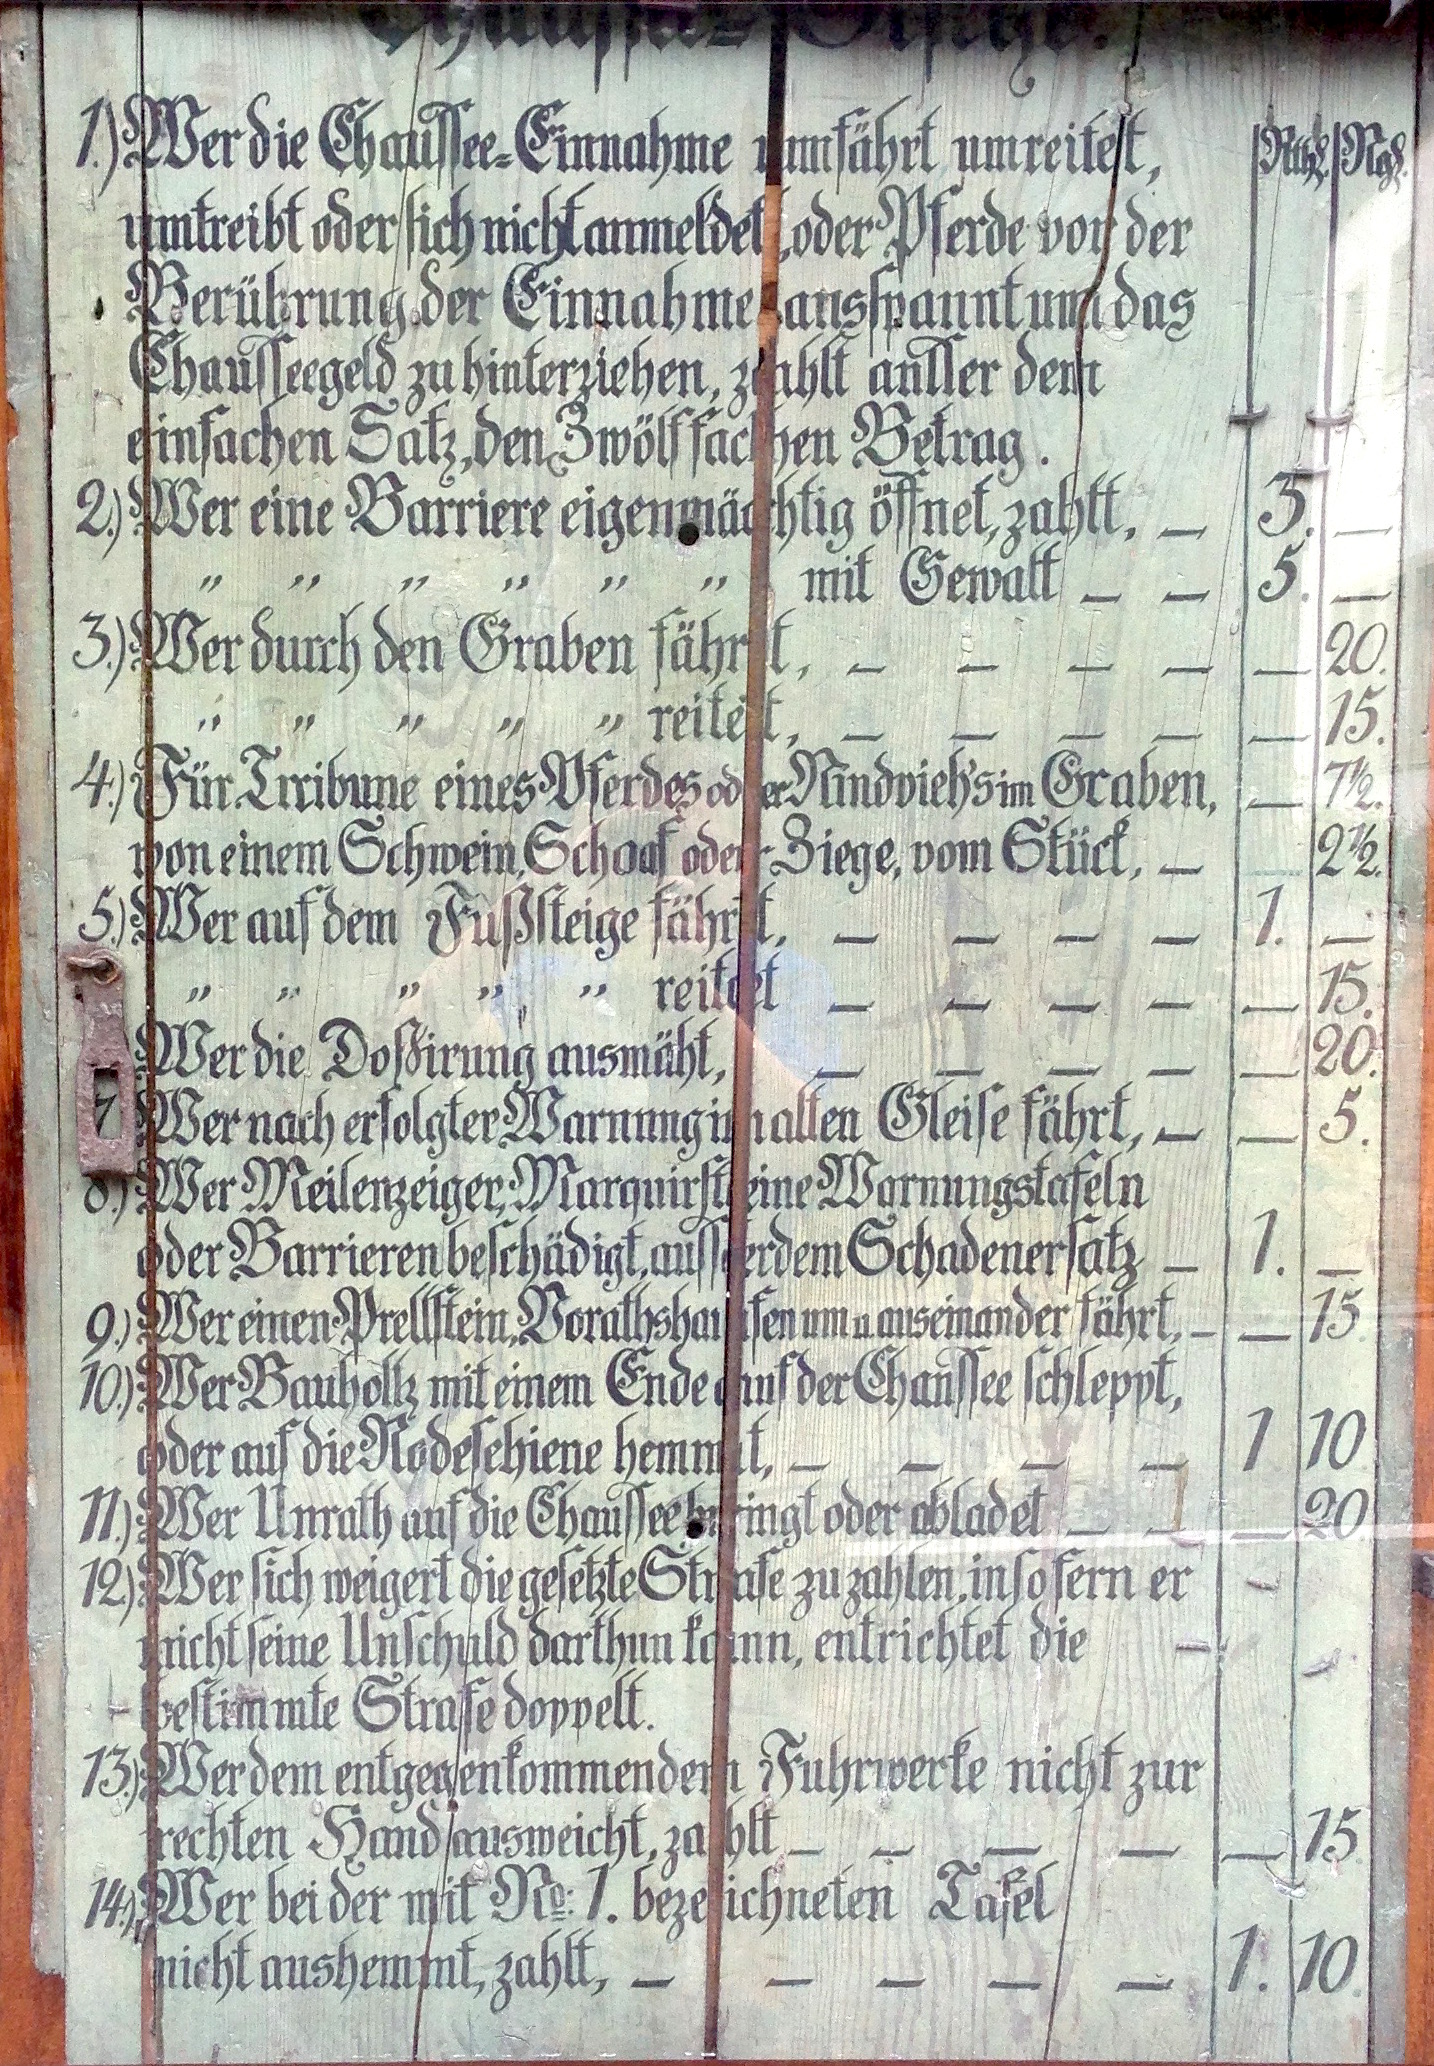 Chaussee-Gesetze.
Rthl. Ngl.
1.) Wer die Chaussee-Einnahme umfährt umreitet,
umtreibt oder sich nicht anmeldet, oder Pferde vor der
Berührung der Einnahme ausspannt um das
Chausseegeld zu hinterziehen, zahlt ausser dem
einfachen Satz, den Zwölffachen Betrag.
2.) Wer eine Barriere eigenmächtig öffnet, zahlt, — 3. —
" " " " " " mit Gewalt — — 5. —
3.) Wer durch den Graben fährt, — — — — — 20.
" " " " " reitet, — — — — — 15.
4.) Für Trribune eines Pferdes oder Rindvieh's im Graben, — 7½.
von einem Schwein, Schaaf oder Ziege, vom Stück, — 2½.
5.) Wer auf dem Fußsteige fährt, — — — — 1. —
" " " " " reitet — — — — — 15.
Wer die Doßirung ausmäht, — — — — — 20.
7 Wer nach erfolgter Warnung in alten Gleise fährt, — — 5.
8.) Wer Meilenzeiger, Marquirsteine Warnungstafeln
oder Barrieren beschädigt, ausserdem Schadenersatz — 1. —
9.) Wer einen Prellstein, Vorathshaufen um u auseinander fährt, — — 15
10.) Wer Bauholtz mit einem Ende auf der Chaussee schleppt,
oder auf die Radeschiene hemmt, — — — — 1 10
11.) Wer Unrath auf die Chaussee bringt oder abladet — — — 20
12.) Wer sich weigert die gesetzte Strafe zu zahlen, in so fern er
nicht seine Unschuld darthun kann, entrichtet die
bestimmte Strafe doppelt.
13.) Wer dem entgegenkommendem Fuhrwerke nicht zur
rechten Hand ausweicht, zahlt — — — — — 15
14.) Wer bei der mit No: 1. bezeichneten Tafel
nicht aushemmt, zahlt, — — — — — 1. 10